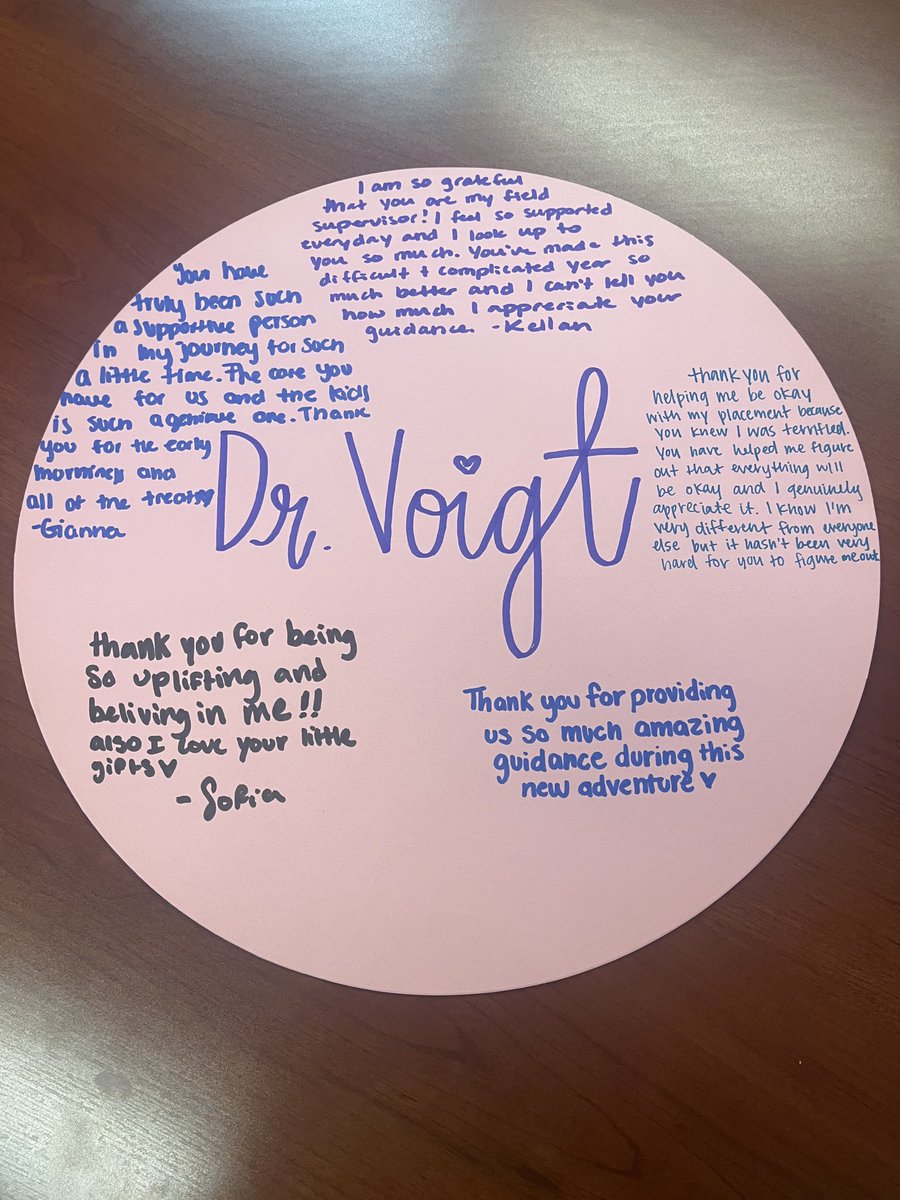 I am so grateful
that you are my field
supervisor! I feel so supported
everyday and I look up to
you so much. You've made this
difficult + complicated year so
much better and I can't tell you
how much I appreciate your
guidance. -Kellan
You have
truly been such
a supportive person
in my journey for such
a little time. The care you
have for us and the kids
is such a genuine one. Thank
you for the early
mornings and
all of the treats!
-Gianna
Dr. Voigt
thank you for
helping me be okay
with my placement because
you knew I was terrified.
you have helped me figure
out that everything will
be okay and I genuinely
appreciate it. I know I'm
very different from everyone
else but it hasn't been very
hard for you to figure me out
thank you for being
so uplifting and
beliving in me!!
also I love your little
gifts♥
- Sofia
Thank you for providing
us so much amazing
guidance during this
new adventure ♥